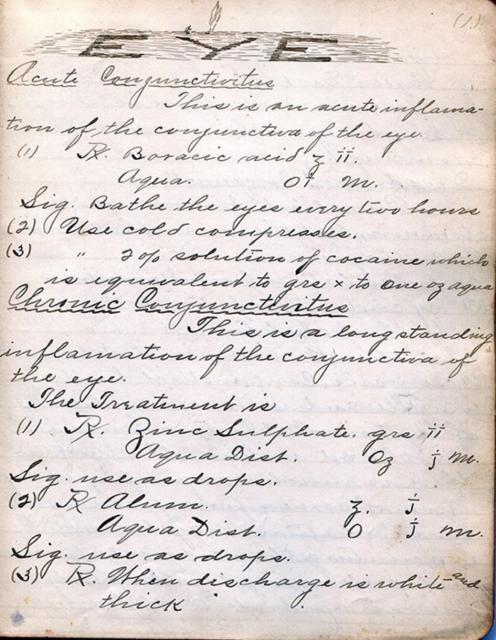 (1)
EYE
Acute Conjunctivitus
This is an acute inflama-
tion of the conjunctiva of the eye
(1) ℞. Boracic acid ʒ ii.
Aqua. Oi M.
Sig. Bathe the eyes every two hours
(2) Use cold compresses.
(3) " 2% solution of cocaine which
is equivalent to grs x to one oz aqua
Chronic Conjunctivitus
This is a long standing
inflamation of the conjunctiva of
the eye.
The Treatment is
(1) ℞. Zinc Sulphate. grs ii
Aqua Dist. Oz j M.
Sig. use as drops.
(2) ℞ Alum. ʒ j
Aqua Dist. O j M.
Sig. use as drops.
(3) ℞. When discharge is white and
thick